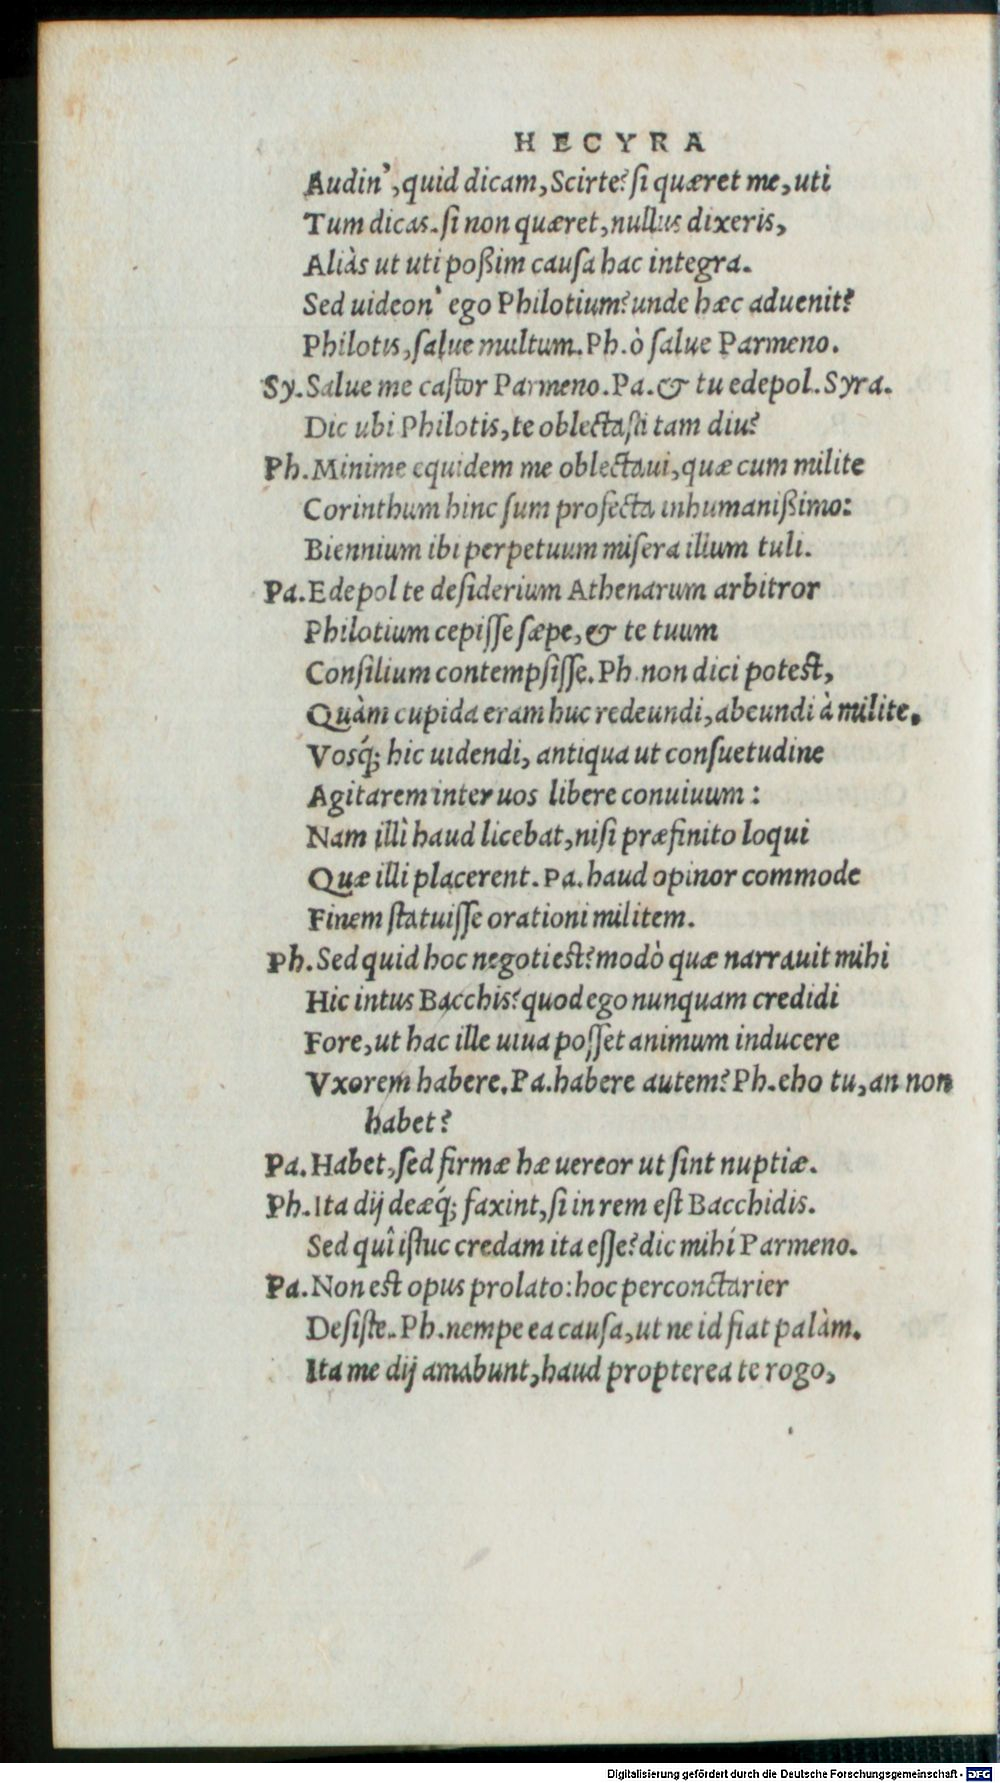 HECYRA
Audin', quid dicam, Scirte? si quæret me, uti
Tum dicas. si non quæret, nullus dixeris,
Aliàs ut uti poßim causa hac integra.
Sed uideon' ego Philotium? unde hæc aduenit?
Philotis, salue multum. Ph. ò salue Parmeno.
Sy. Salue me castor Parmeno. Pa. & tu edepol. Syra.
Dic ubi Philotis, te oblectasti tam diu?
Ph. Minime equidem me oblectaui, quæ cum milite
Corinthum hinc sum profecta inhumanißimo:
Biennium ibi perpetuum misera illum tuli.
Pa. Edepol te desiderium Athenarum arbitror
Philotium cepisse sæpe, & te tuum
Consilium contempsisse. Ph. non dici potest,
Quàm cupida eram huc redeundi, abeundi à milite.
Vosq́; hic uidendi, antiqua ut consuetudine
Agitarem inter uos libere conuiuum:
Nam illì haud licebat, nisi præfinito loqui
Quæ illi placerent. Pa. haud opinor commode
Finem statuisse orationi militem.
Ph. Sed quid hoc negoti est? modò quæ narrauit mihi
Hic intus Bacchis? quod ego nunquam credidi
Fore, ut hac ille uiua posset animum inducere
Vxorem habere. Pa. habere autem? Ph. eho tu, an non
habet?
Pa. Habet, sed firmæ hæ uereor ut sint nuptiæ.
Ph. Ita dij deæq́; faxint, si in rem est Bacchidis.
Sed quî istuc credam ita esse? dic mihí Parmeno.
Pa. Non est opus prolato: hoc perconctarier
Desiste. Ph. nempe ea causa, ut ne id fiat palàm.
Ita me dij amabunt, haud propterea te rogo,
Digitalisierung gefördert durch die Deutsche Forschungsgemeinschaft - DFG